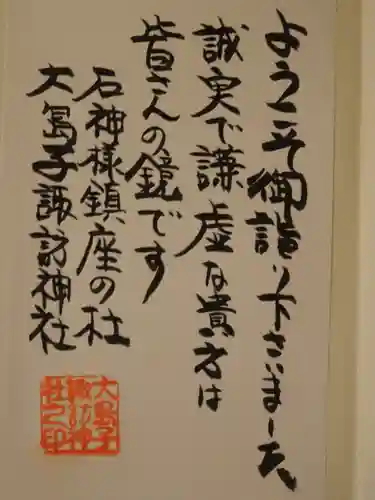 ようこそ御詣り下さいました
誠実で謙虚な貴方は
皆さんの鏡です
石神様鎮座の杜
大島子諏訪神社
大島子
諏訪神
社之印